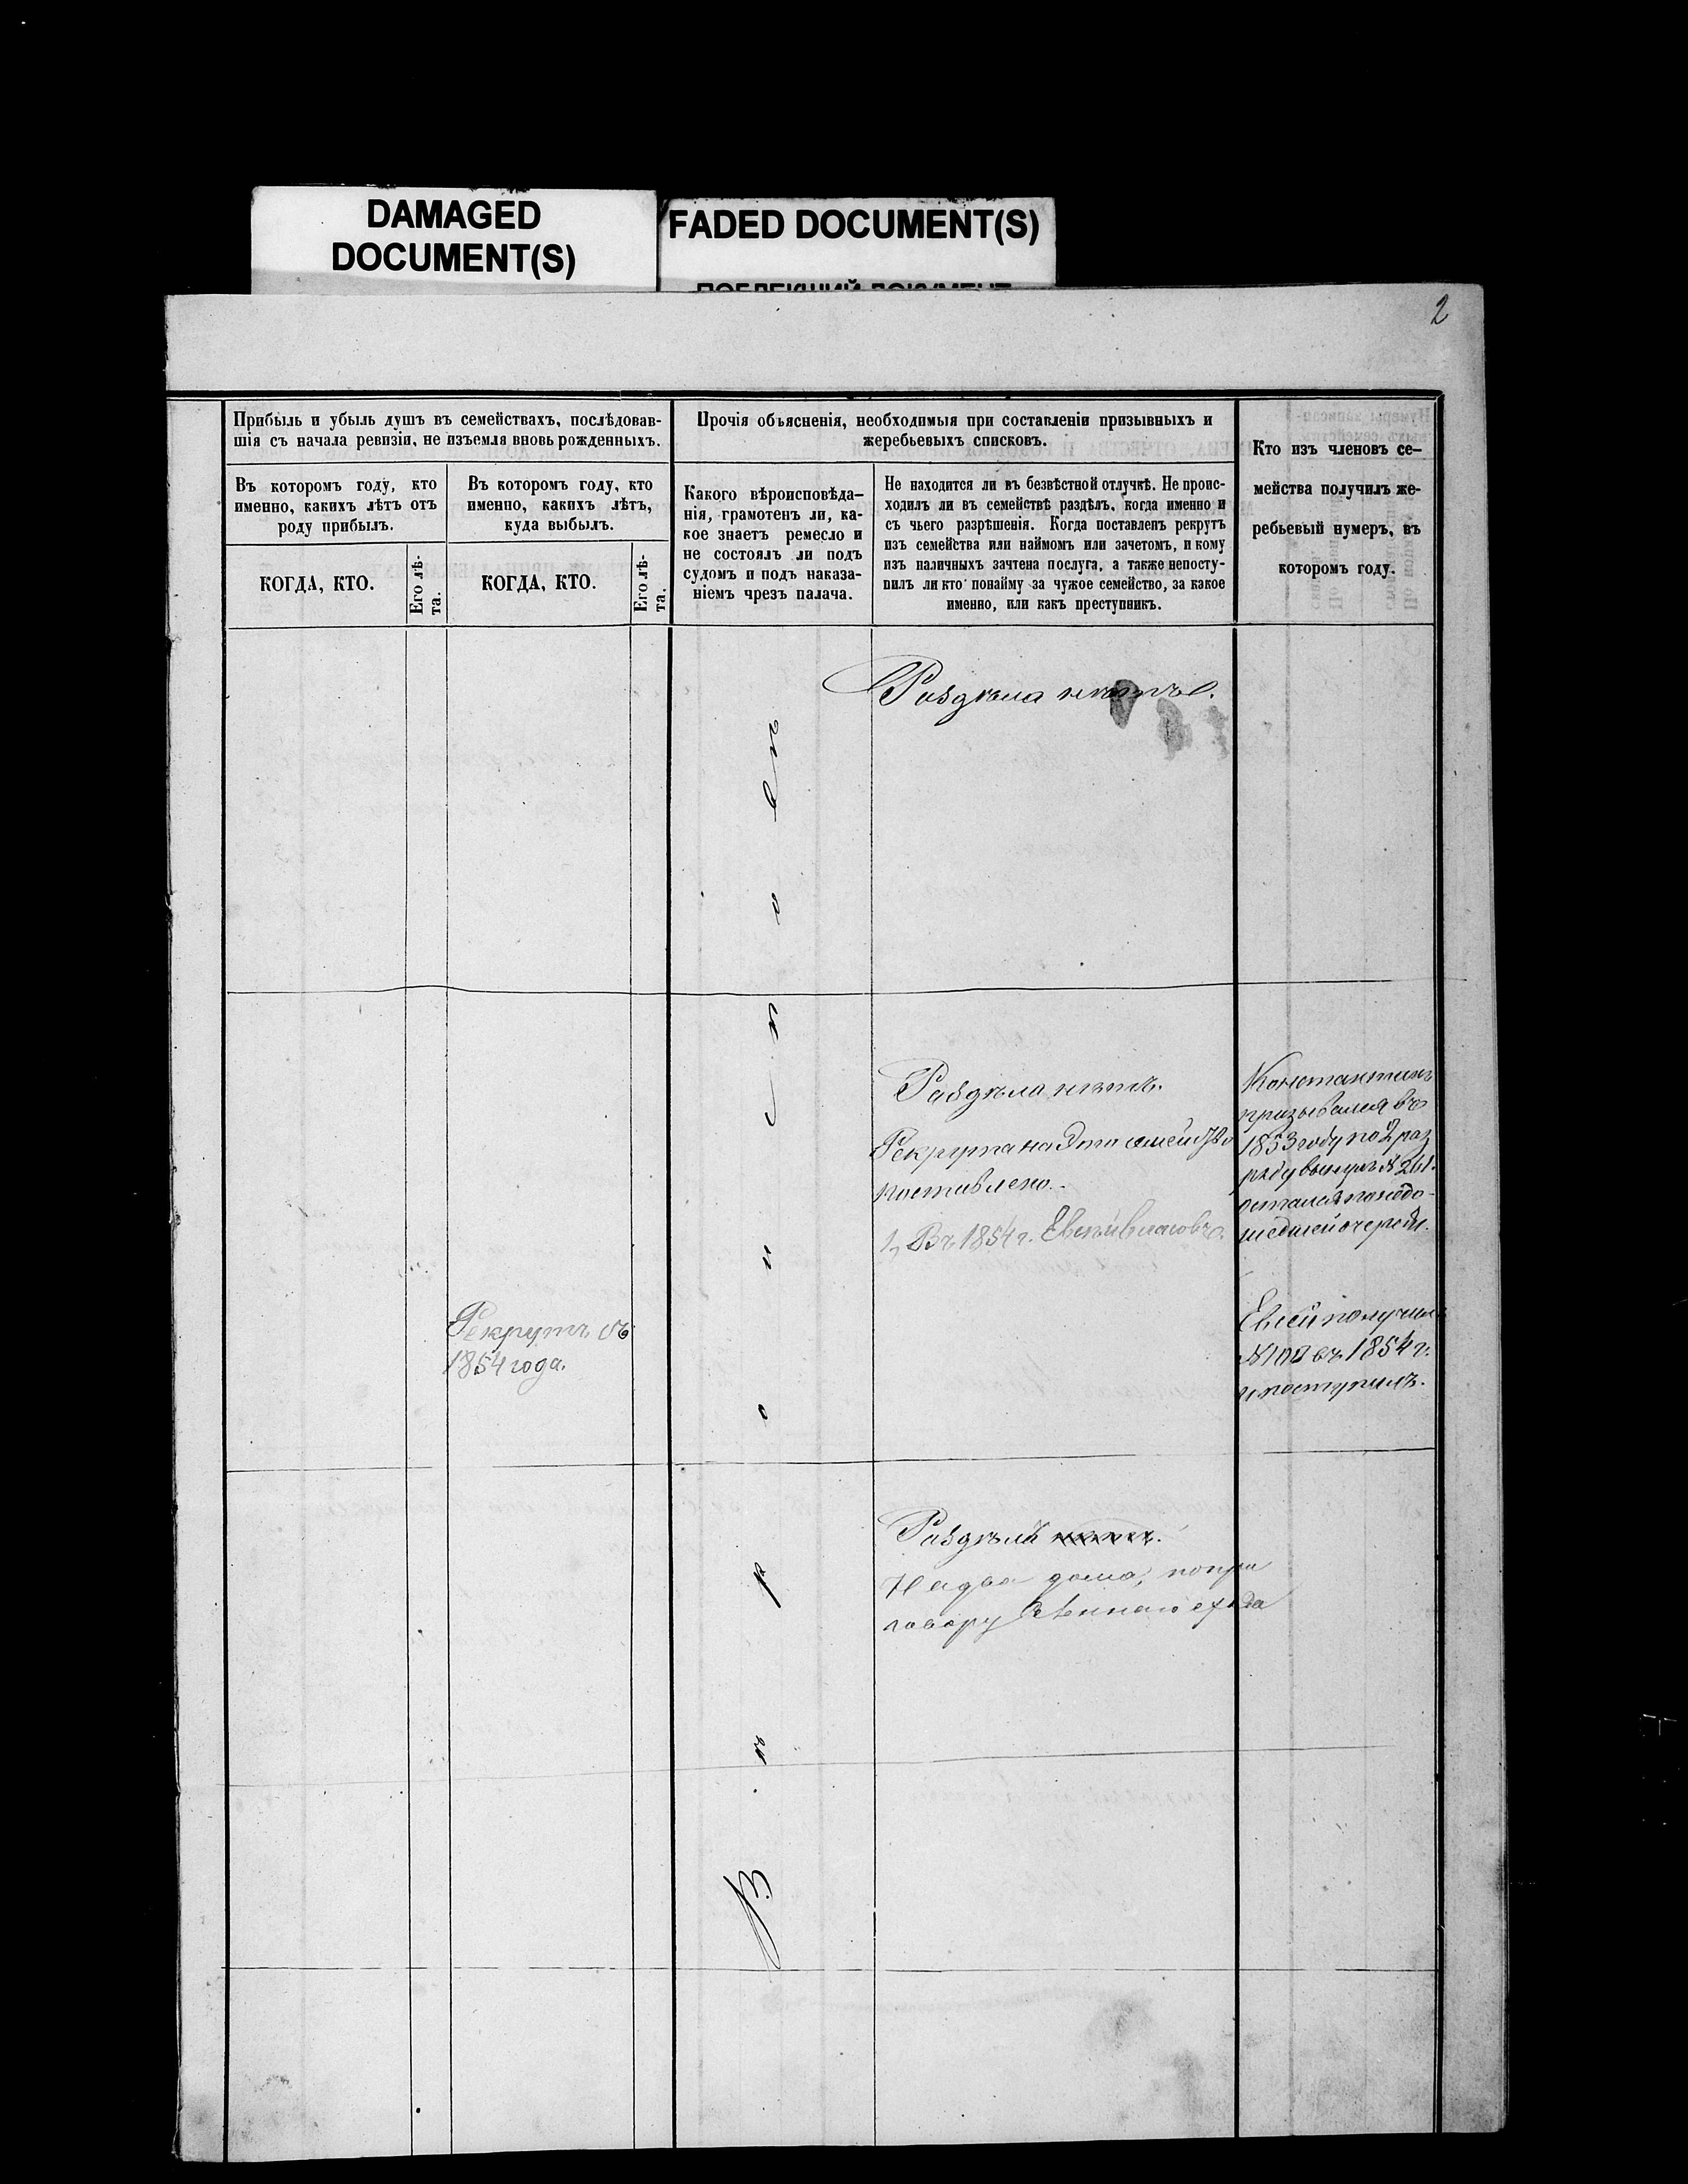 DAMAGED
DOCUMENT(S)
FADED DOCUMENT(S)
2
Прибыль и убыль душъ въ семействахъ, послѣдовав-
шія съ начала ревизіи, не изъемля вновь рожденныхъ.
Въ которомъ году, кто
именно, какихъ лѣтъ отъ
роду прибылъ.
КОГДА, КТО.
Его лѣ-
та.
Въ которомъ году, кто
именно, какихъ лѣтъ,
куда выбылъ.
КОГДА, КТО.
Его лѣ-
та.
Прочія объясненія, необходимыя при составленіи призывныхъ и
жеребьевыхъ списковъ.
Какого вѣроисповѣда-
нія, грамотенъ ли, ка-
кое знаетъ ремесло и
не состоялъ ли подъ
судомъ и подъ наказа-
ніемъ чрезъ палача.
Не находится ли въ безвѣстной отлучкѣ. Не проис-
ходилъ ли въ семействѣ раздѣлъ, когда именно и
съ чьего разрѣшенія. Когда поставленъ рекрутъ
изъ семейства или наймомъ или зачетомъ, и кому
изъ наличныхъ зачтена послуга, а также непосту-
пилъ ли кто понайму за чужое семейство, за какое
именно, или какъ преступникъ.
Кто изъ членовъ се-
мейства получилъ же-
ребьевый нумеръ, въ
которомъ году.
Раздѣла нѣтъ.
Раздѣла нѣтъ.
Рекрута на Это семейство
поставлено.
1, Въ 1854 г. Евсѣй Власовъ.
Константинъ
призывался въ
1853 году по 2 раз
ряду вынулъ №
остался по недо-
шедшей очереди.
Рекрутъ съ
1854 года.
Евсей получилъ
въ 1854 г.
и поступилъ.
Раздѣлъ
На два дома, по при
говору